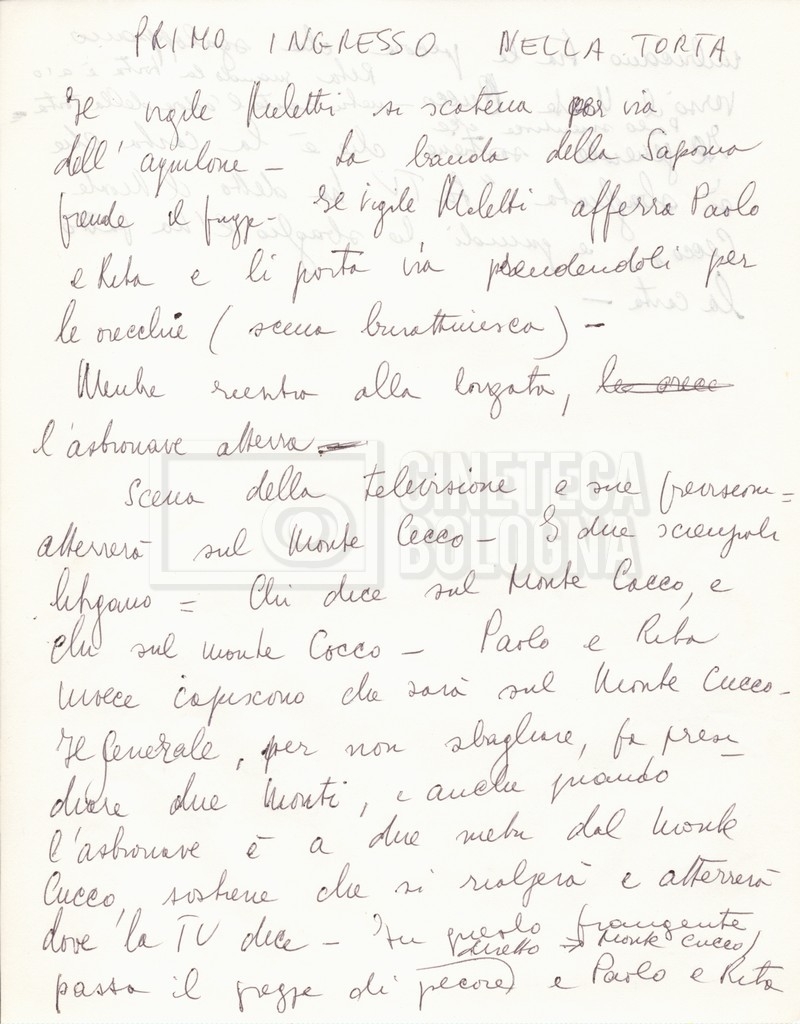 PRIMO INGRESSO NELLA TORTA
Il vigile Meletti si scatena per via
dell'aquilone – La banda della Saponia
prende il fugge – Il vigile Meletti afferra Paolo
e Rita e li porta via prendendoli per
le orecchie (scena burattinesca) –
Mentre rientra alla borgata, le orecc
l'astronave atterra
Scena della televisione e sue previsioni =
atterrerà sul Monte Cecco – I due scienziati
litigano = Chi dice sul Monte Cacco, e
chi sul monte Cocco – Paolo e Rita
invece capiscono che sarà sul Monte Cucco –
Il Generale, per non sbagliare, fa presi –
diare due Monti, e anche quando
l'astronave è a due metri dal Monte
Cucco, sostiene che si rialzerà e atterrerà
dove la TV dice – In questo frangente
diretto → Monte Cucco)
passa il gregge di pecore) e Paolo e Rita
CINETECA
BOLOGNA